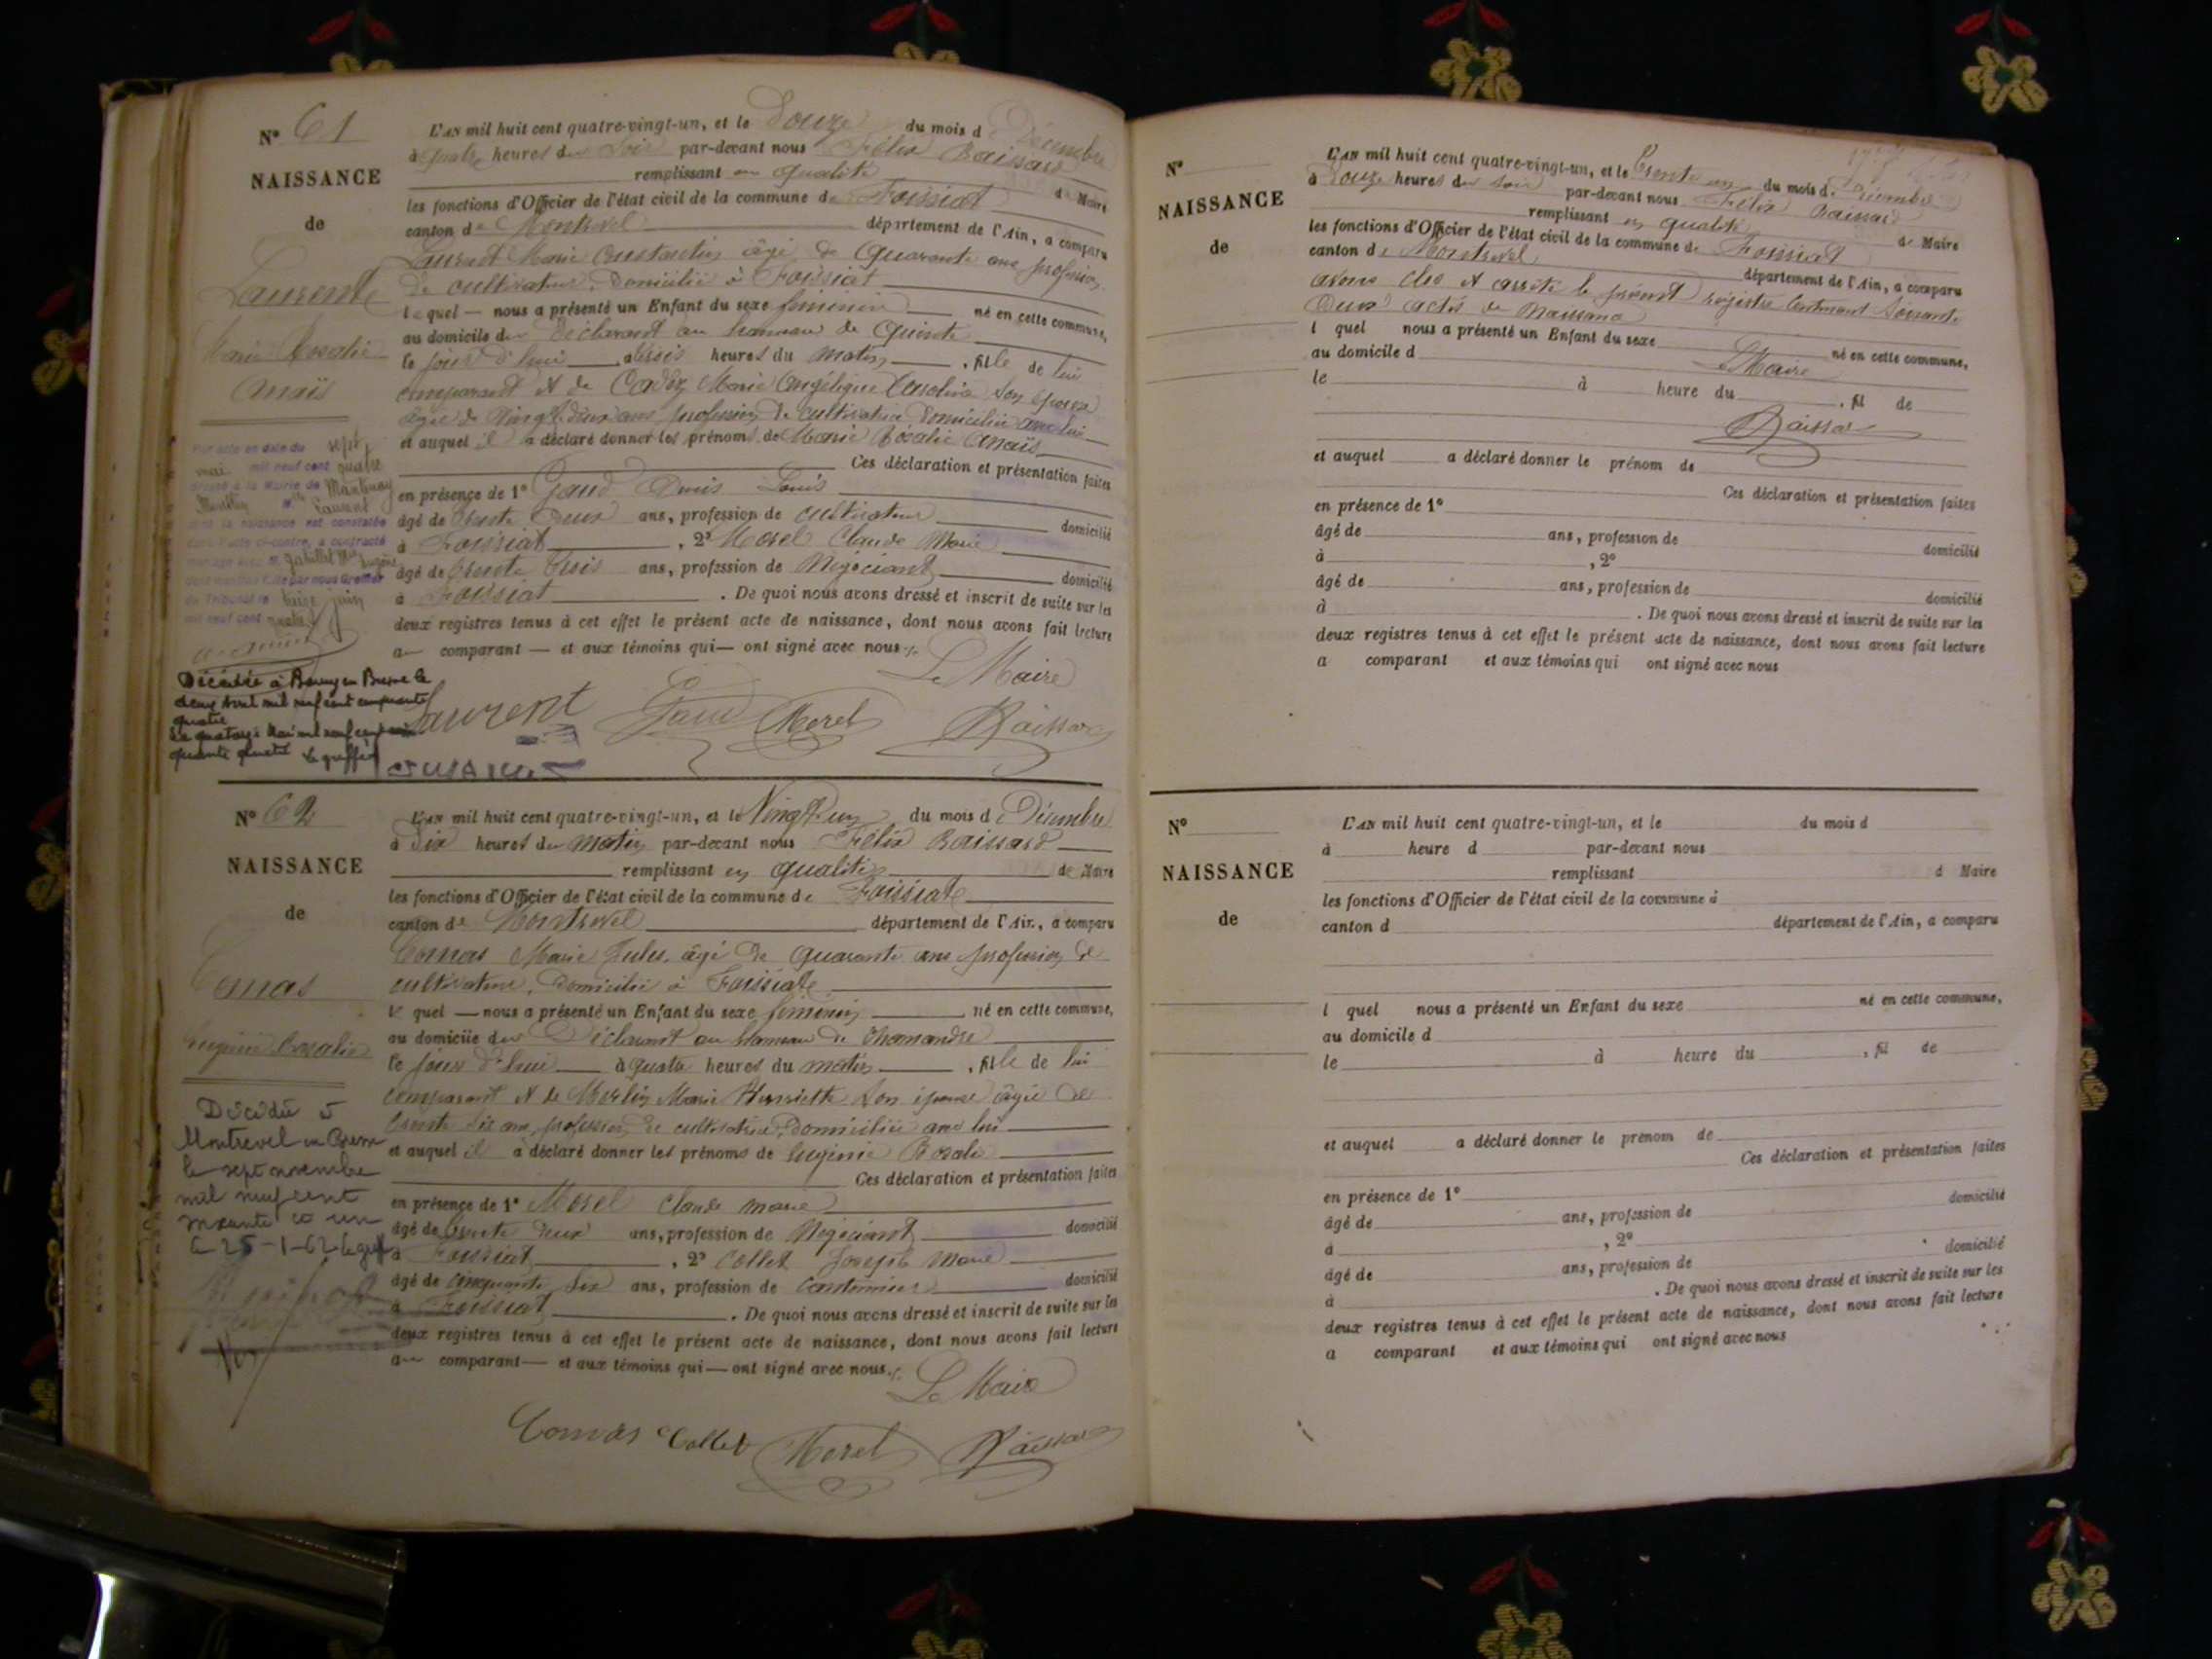 N° 61
NAISSANCE
de
Laurent
Marie Rosalie
Anaïs
L'AN mil huit cent quatre-vingt-un, et le Douze du mois d Décembre
à quatre heures du Soir par-devant nous Félix Raissard
remplissant en qualité de Maire
les fonctions d'Officier de l'état civil de la commune de Foissiat
canton de Montrevel département de l'Ain, a comparu
Laurent Marie Constantin âgé de Quarante ans profession
de cultivateur, Domicilié à Foissiat
lequel — nous a présenté un Enfant du sexe féminin né en cette commune,
au domicile du Déclarant au hameau de
le jour d'hui à trois heures du matin, fille de lui
comparant et de Marie Angélique son épouse
âgée de Vingt deux ans profession de cultivatrice Domiciliée avec lui
et auquel il a déclaré donner les prénoms de Marie Rosalie Anaïs
Ces déclaration et présentation faites
en présence de 1° Gaud Denis Louis
âgé de trente Deux ans, profession de cultivateur domicilié
à Foissiat, 2° Morel Claude Marie
âgé de trente trois ans, profession de Négociant domicilié
à Foissiat. De quoi nous avons dressé et inscrit de suite sur les
deux registres tenus à cet effet le présent acte de naissance, dont nous avons fait lecture
au comparant — et aux témoins qui — ont signé avec nous.
Le Maire
Laurent Gaud Morel Raissard
Par acte en date du sept
mai mil neuf cent quatre
dressé à la Mairie de Mantenay
Montlin Mlle Laurent
dont la naissance est constatée
dans l'acte ci-contre, a contracté
mariage avec M.
dont mention faite par nous Greffier
du Tribunal le treize juin
mil neuf cent quatre
Décédée à Bourg en Bresse le
deux Avril mil neuf cent cinquante
quatre
Le quatorze Mai mil neuf cent cin
quante quatre Le greffier
N° 62
NAISSANCE
de
Comas
Eugénie Rosalie
L'AN mil huit cent quatre-vingt-un, et le Vingt un du mois de Décembre
à Dix heures du matin par-devant nous Félix Raissard
remplissant en qualité de Maire
les fonctions d'Officier de l'état civil de la commune de Foissiat
canton de Montrevel département de l'Ain, a comparu
Comas Marie Jules, âgé de Quarante ans profession de
cultivateur, Domicilié à Foissiat
le quel — nous a présenté un Enfant du sexe féminin né en cette commune,
au domicile du Déclarant au hameau de Chamandre
le jour d'hui à quatre heures du matin, fille de lui
comparant et de Merlin Marie Henriette son épouse âgée de
trente six ans, profession de cultivatrice, Domiciliée avec lui
et auquel il a déclaré donner les prénoms de Eugénie Rosalie
Ces déclaration et présentation faites
en présence de 1° Morel Claude Marie
âgé de trente deux ans, profession de Négociant domicilié
à Foissiat, 2° Collet Joseph Marie
âgé de cinquante six ans, profession de cantonnier domicilié
à Foissiat. De quoi nous avons dressé et inscrit de suite sur les
deux registres tenus à cet effet le présent acte de naissance, dont nous avons fait lecture
au comparant — et aux témoins qui — ont signé avec nous.
Le Maire
Comas Collet Morel Raissard
Décédée à
Montrevel en Bresse
le sept novembre
mil neuf cent
soixante et un
Le 25-1-62 Le greff
N°
NAISSANCE
de
L'AN mil huit cent quatre-vingt-un, et le Trente un du mois de Décembre
à Douze heures du soir par-devant nous Félix Raissard
remplissant en qualité de Maire
les fonctions d'Officier de l'état civil de la commune de Foissiat
canton de Montrevel département de l'Ain, a comparu
avons clos et arrêté le présent registre contenant Soixante
Deux actes de Naissance
l quel nous a présenté un Enfant du sexe né en cette commune,
au domicile d Le Maire
le à heure du, fil de
Raissard
et auquel a déclaré donner le prénom de
Ces déclaration et présentation faites
en présence de 1°
âgé de ans, profession de domicilié
à, 2°
âgé de ans, profession de domicilié
à. De quoi nous avons dressé et inscrit de suite sur les
deux registres tenus à cet effet le présent acte de naissance, dont nous avons fait lecture
a comparant et aux témoins qui ont signé avec nous
N°
NAISSANCE
de
L'AN mil huit cent quatre-vingt-un, et le du mois d
à heure d par-devant nous
remplissant d Maire
les fonctions d'Officier de l'état civil de la commune d
canton d département de l'Ain, a comparu
l quel nous a présenté un Enfant du sexe né en cette commune,
au domicile d
le à heure du, fil de
et auquel a déclaré donner le prénom de
Ces déclaration et présentation faites
en présence de 1°
âgé de ans, profession de domicilié
à, 2°
âgé de ans, profession de domicilié
à. De quoi nous avons dressé et inscrit de suite sur les
deux registres tenus à cet effet le présent acte de naissance, dont nous avons fait lecture
a comparant et aux témoins qui ont signé avec nous